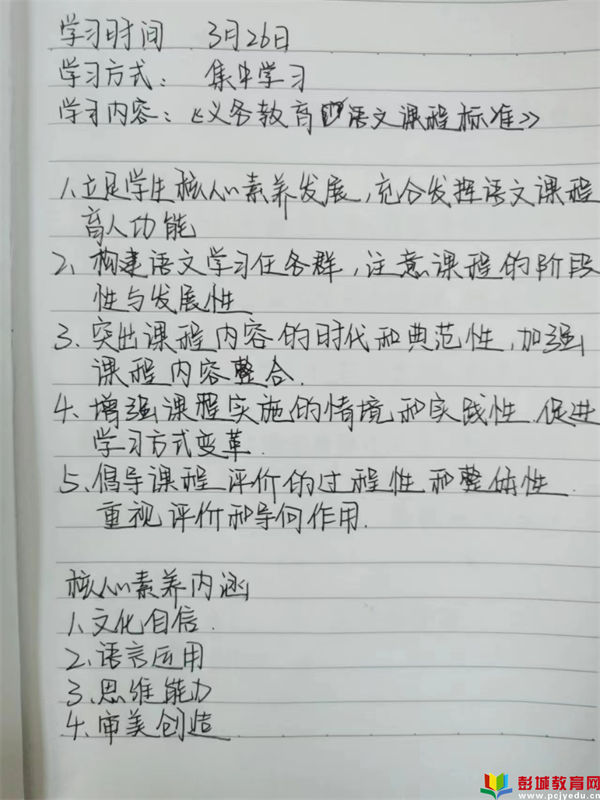 学习时间 3月26日
学习方式：集中学习
学习内容：《义务教育语文课程标准》
1.立足学生核心素养发展，充分发挥语文课程
育人功能
2.构建语文学习任务群，注意课程的阶段
性与发展性
3.突出课程内容的时代和典范性，加强
课程内容整合.
4.增强课程实施的情境和实践性 促进
学习方式变革
5.倡导课程评价的过程性和整体性
重视评价和导向作用.
核心素养内涵
1.文化自信.
2.语言运用
3.思维能力
4.审美创造
彭城教育网
www.pcjyedu.cn